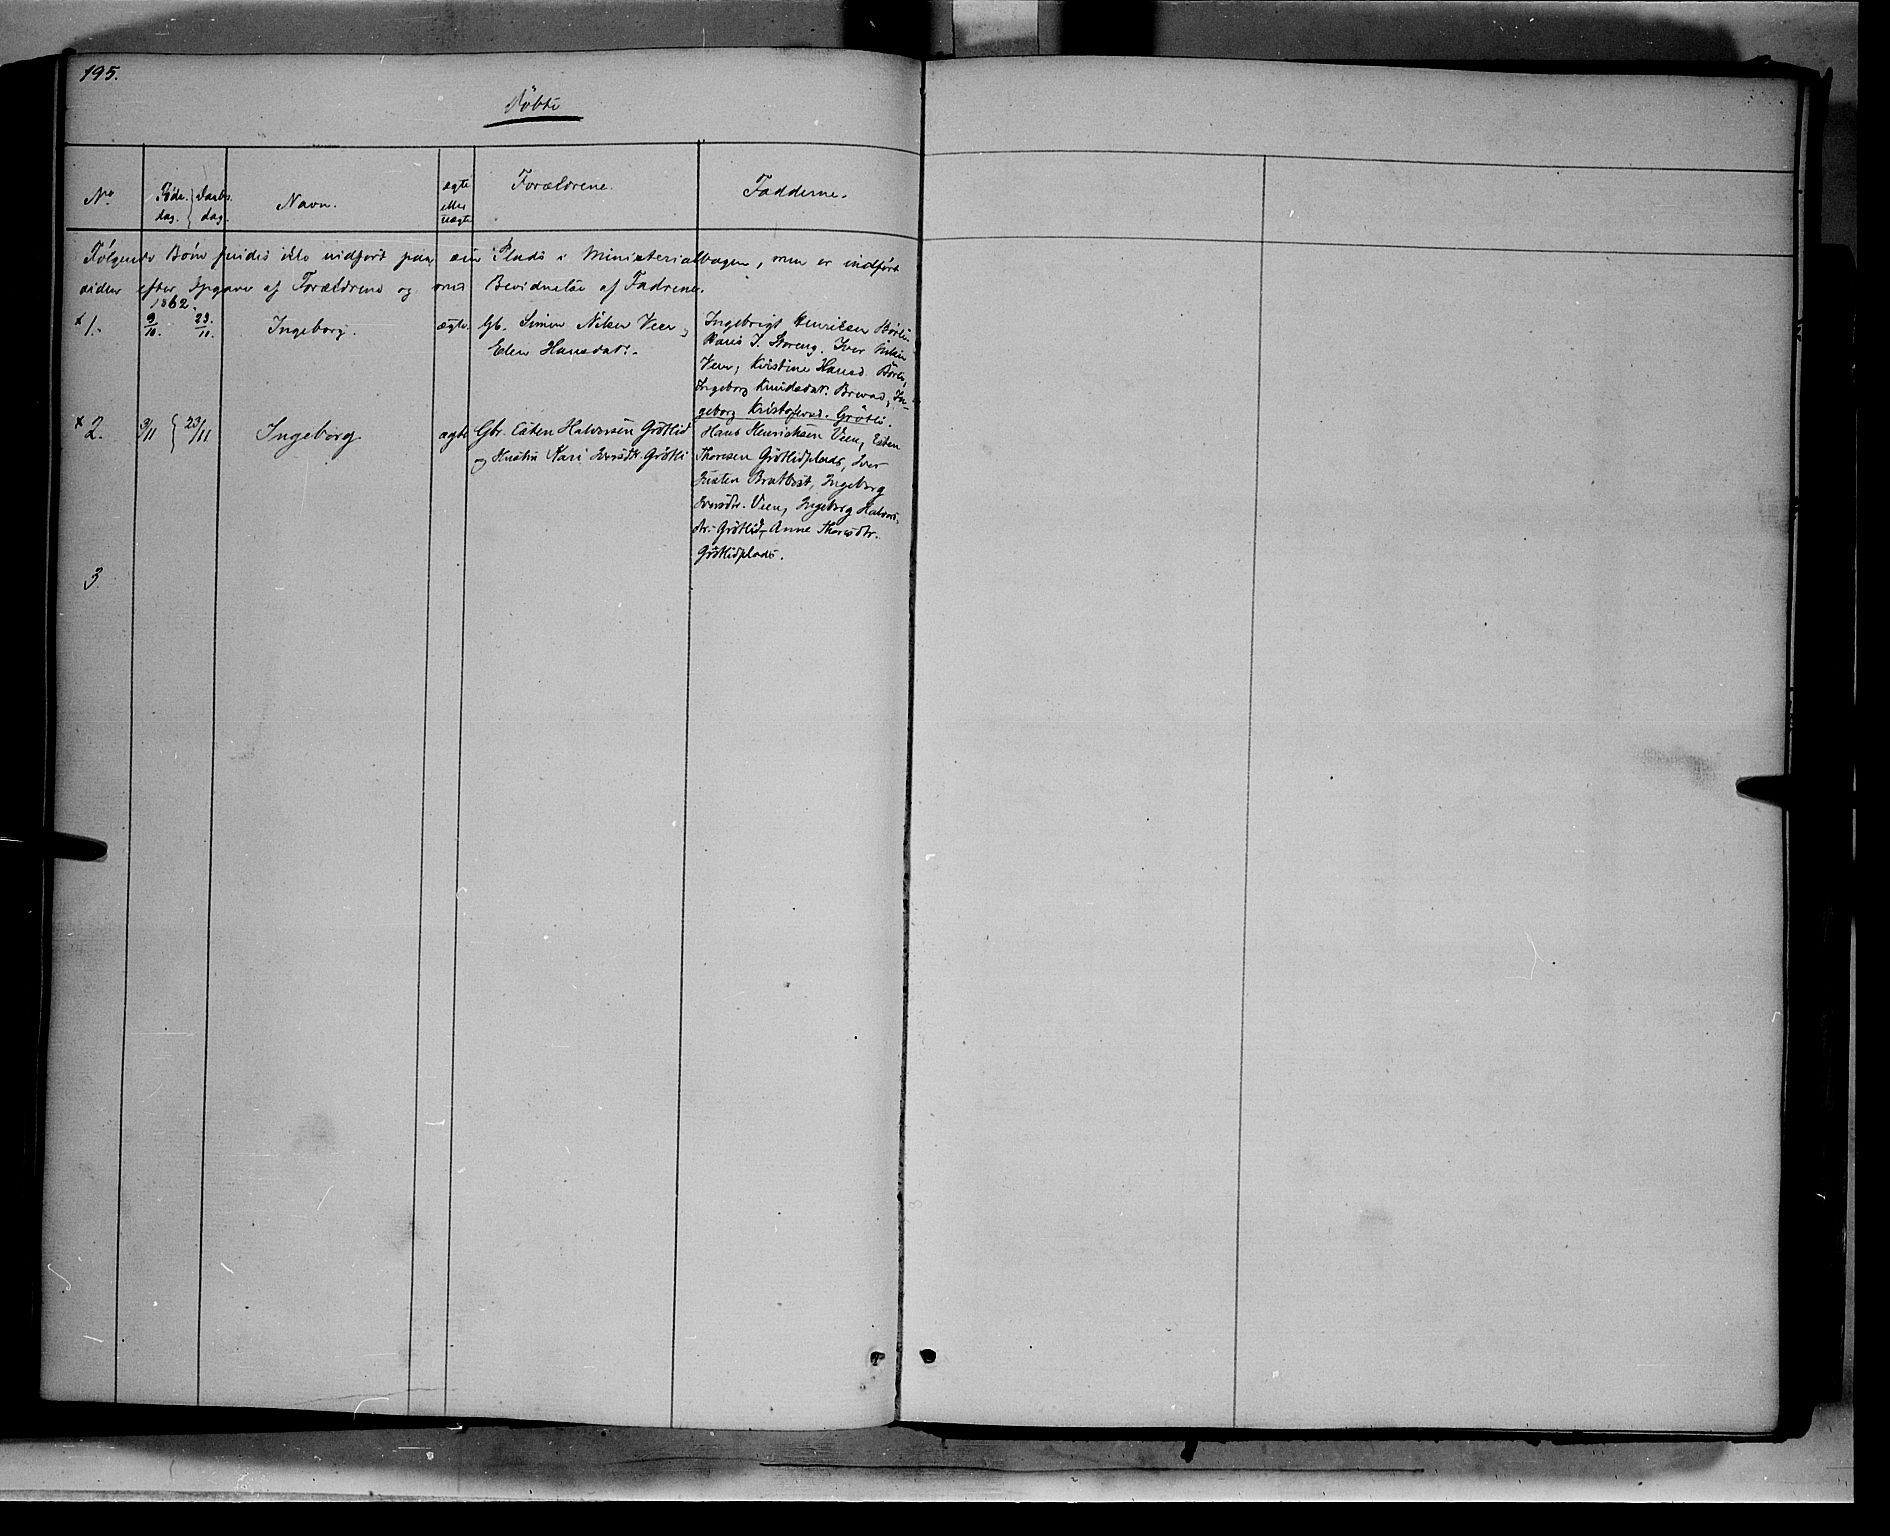 195.
Døbte
No
Føde-
dag.
Daabs
dag.
Navn.
ægte
eller
uægte
Forældrene.
Fadderne.
Følgende Børn findes ikke indført paa sin Plads i Ministerialbogen, men er indført
siden efter Opgave af Forældrene og med Bevidnelse af Fadrene.
1862.
x 1.
9/10.
23./11.
Ingeborg.
ægte.
Gb. Simen Nilsen Veen og
Elen Hansdatr.
Ingebrigt Henriksen
Storeng. Iver
Veen, Kristine Hansd.
Ingeborg Knudsdat. In-
geborg Kristofersd. Grøtli.
x 2.
3/11
23/11
Ingeborg
ægte
Gbr. Esten Halvorsen Grøtlid
og Hustru Kari Iversdtr. Grøtli
Hans Henriksen Veen, Esten
Thoresen Grøtlidplads, Iver
Justen Bratbost, Ingeborg
Iversdtr. Veen, Ingeborg Halvors-
dtr. Grøtlid, Anne Thoresdtr.
Grøtlidplads.
3